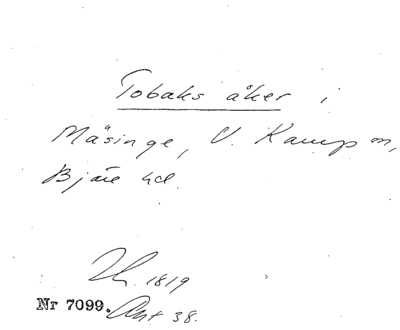 Tobaks åker i
Mäsinge, V. Karup sn,
Bjäre hd.
1819
Nr 7099. Ant 38.